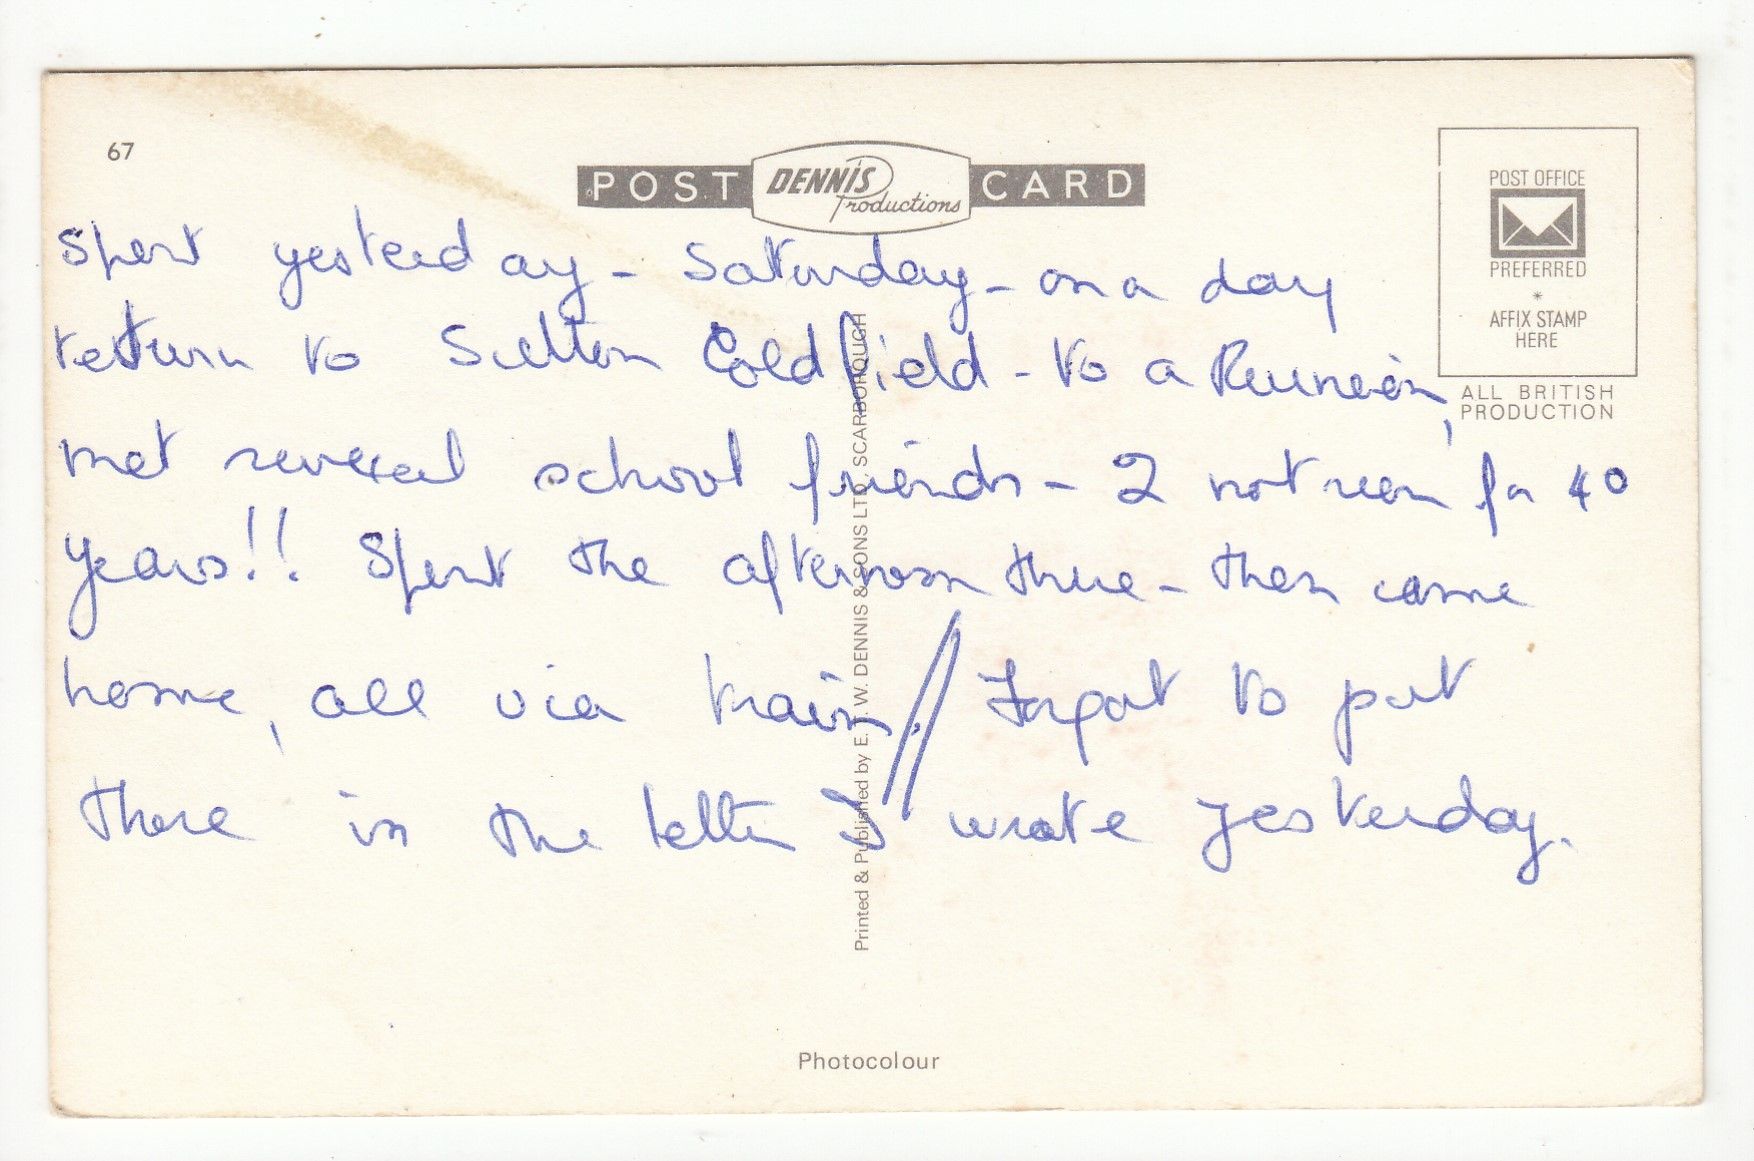 67
POST DENNIS Productions CARD
POST OFFICE
PREFERRED
*
AFFIX STAMP
HERE
ALL BRITISH
PRODUCTION
Spent yesterday - Saturday - on a day
return to Sutton Coldfield - to a Reunion,
met several school friends - 2 not seen for 40
years!! Spent the afternoon there - then came
home, all via train. // Forgot to put
these in the letter I wrote yesterday.
Printed & Published by E. T. W. DENNIS & SONS LTD., SCARBOROUGH
Photocolour